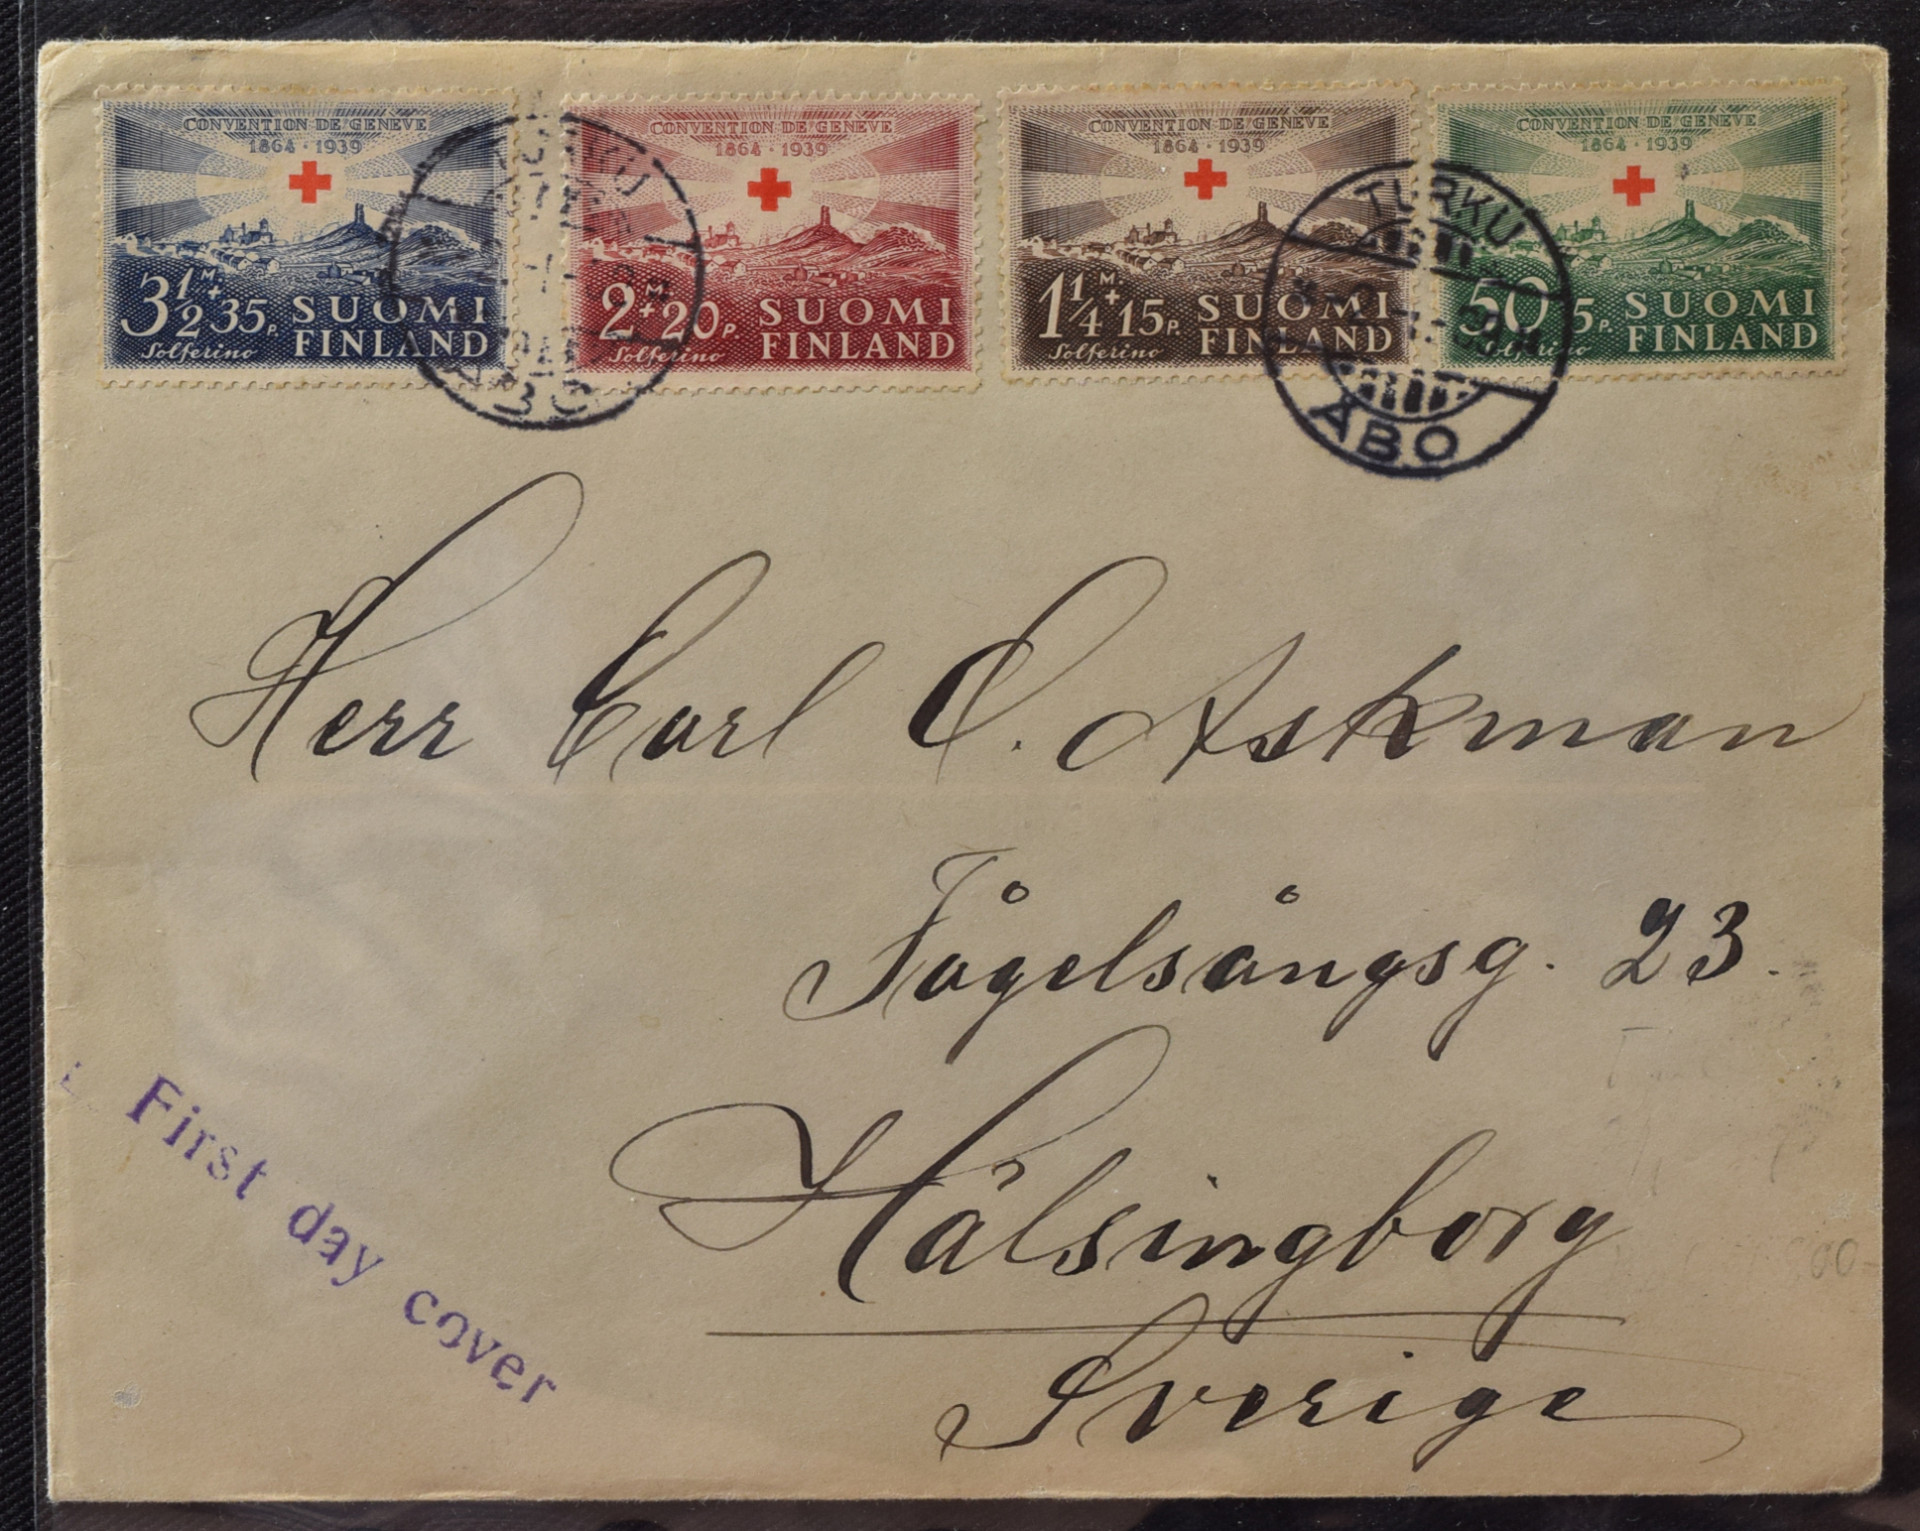 CONVENTION DE GENEVE
1864 · 1939
3½ M + 35 P. SUOMI
Solferino FINLAND
CONVENTION DE GENEVE
1864 · 1939
2 M + 20 P. SUOMI
Solferino FINLAND
CONVENTION DE GENEVE
1864 · 1939
1¼ M. + 15 P. SUOMI
Solferino FINLAND
CONVENTION DE GENEVE
1864 · 1939
50 5 P. SUOMI
Solferino FINLAND
TURKU
ÅBO
TURKU
ÅBO
Herr Carl C. Askman
Fågelsångsg. 23.
Hälsingborg
Sverige
First day cover